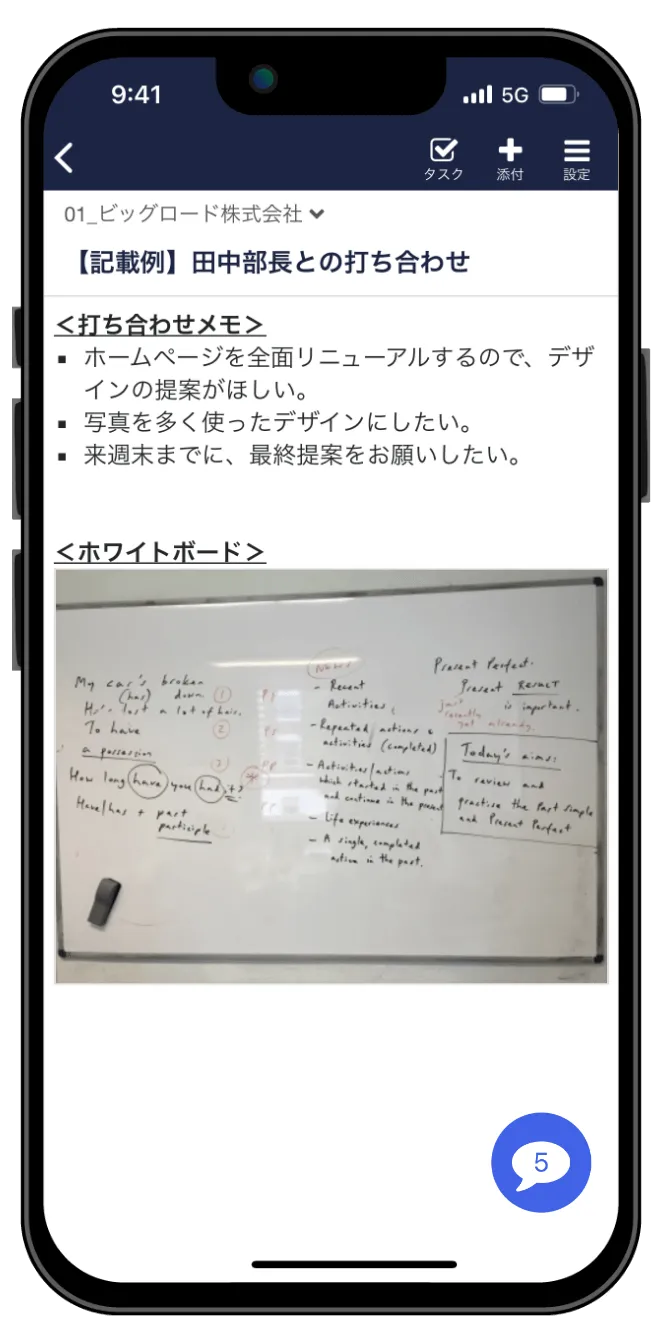 9:41
5G
タスク
添付
設定
01_ビッグロード株式会社
【記載例】田中部長との打ち合わせ
＜打ち合わせメモ＞
▪ ホームページを全面リニューアルするので、デザ
インの提案がほしい。
▪ 写真を多く使ったデザインにしたい。
▪ 来週末までに、最終提案をお願いしたい。
＜ホワイトボード＞
My car's broken
(has) down ①
lost a lot of hair.
To have ②
a possession
How long have you had it?
Have/has + past
participle
News
- Recent
Activities
- Repeated actions &
activities (completed)
- Activities/actions
which started in the past
and continue in the present
- Life experiences
- A single, completed
action in the past.
Present Perfect.
Present RESULT
is important.
just
recently
yet already.
Today's aims:
To review and
practise the Past Simple
and Present Perfect
5